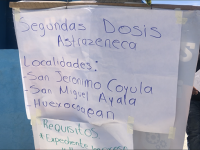 Segundas Dosis
Astrazeneca
Localidades:
-San Jeronimo Coyula
-San Miguel Ayala
-Huexocoapan
Requisitos
* Expediente